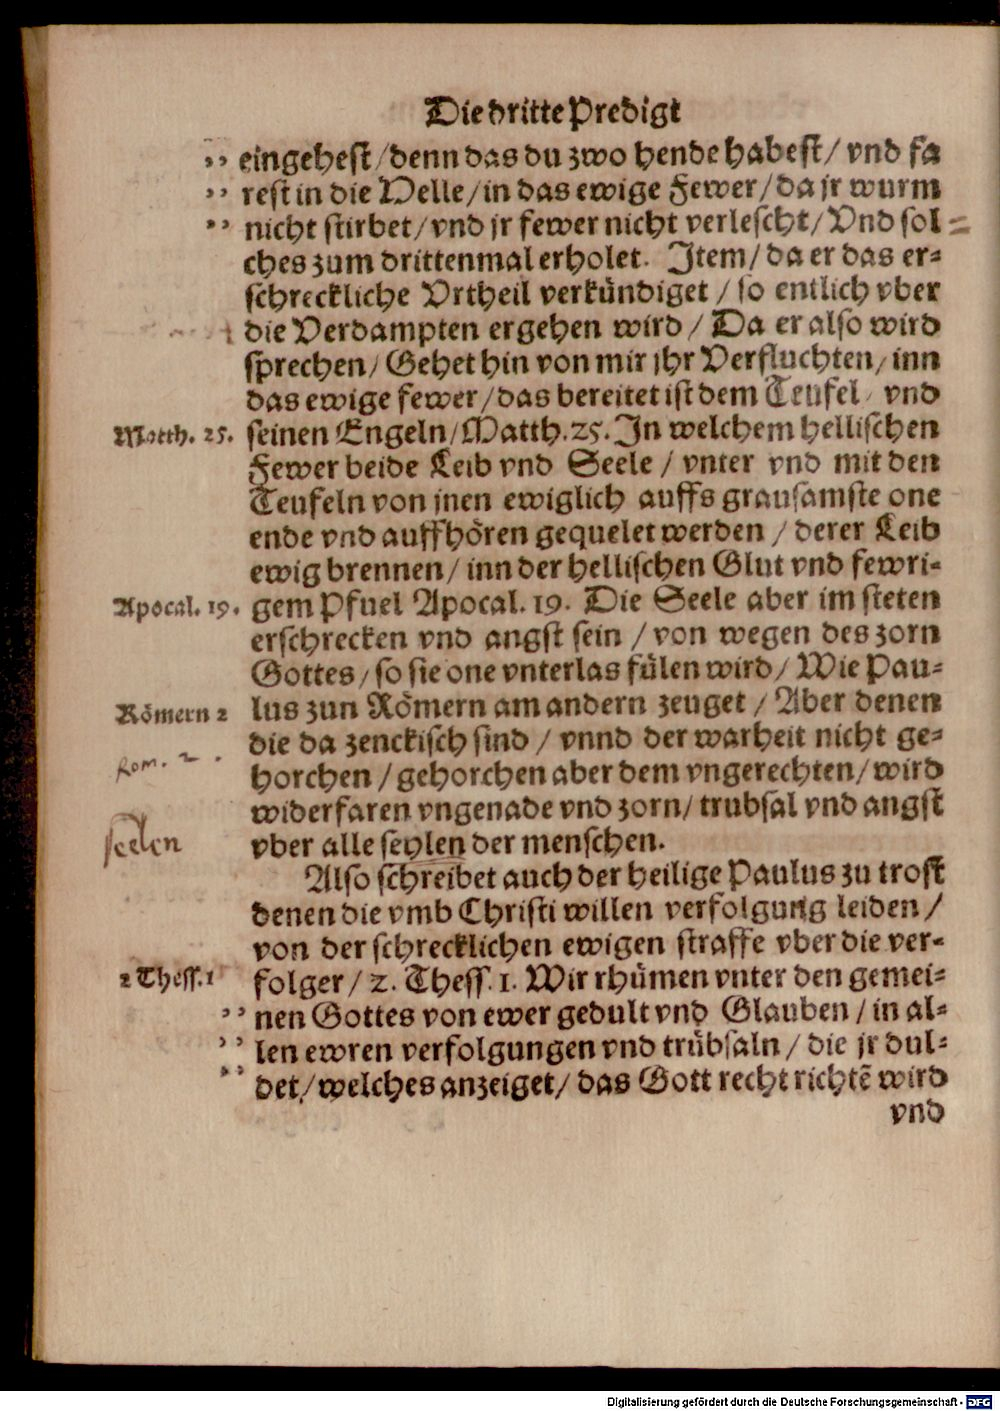 Die dritte Predigt
„ eingehest/denn das du zwo hende habest/ vnd fa
„ rest in die Velle/in das ewige Fewer/da jr wurm
„ nicht stirbet/vnd jr fewer nicht verlescht/Vnd sol=
ches zum drittenmal erholet. Item/da er das er=
schreckliche Vrtheil verkündiget / so entlich vber
die Verdampten ergehen wird / Da er also wird
sprechen/ Gehet hin von mir jhr Verfluchten/inn
das ewige fewer/das bereitet ist dem Teufel/ vnd
Matth. 25. seinen Engeln/Matth.25. In welchem hellischen
Fewer beide Leib vnd Seele / vnter vnd mit den
Teufeln von jnen ewiglich auffs grausamste one
ende vnd auffhören gequelet werden / derer Leib
ewig brennen/ inn der hellischen Glut vnd fewri=
Apocal. 19. gem Pfuel Apocal. 19. Die Seele aber im steten
erschrecken vnd angst sein / von wegen des zorn
Gottes/so sie one vnterlas fülen wird/ Wie Pau=
Römern 2 lus zun Römern am andern zeuget / Aber denen
die da zenckisch sind / vnnd der warheit nicht ge=
Rom. 2.
horchen /gehorchen aber dem vngerechten/wird
widerfaren vngenade vnd zorn/ trubsal vnd angst
seelen
vber alle seylen der menschen.
Also schreibet auch der heilige Paulus zu trost
denen die vmb Christi willen verfolgung leiden /
von der schrecklichen ewigen straffe vber die ver=
2 Thess. 1 folger/ 2. Thess. 1. Wir rhümen vnter den gemei=
„ nen Gottes von ewer gedult vnd Glauben / in al=
„ len ewren verfolgungen vnd trübsaln / die jr dul=
„ det/welches anzeiget/ das Gott recht richtẽ wird
vnd
Digitalisierung gefördert durch die Deutsche Forschungsgemeinschaft - DFG